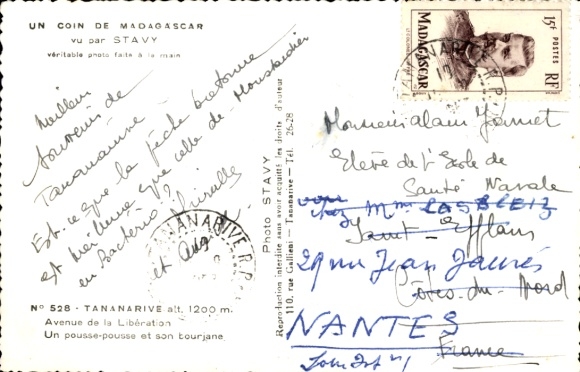 UN COIN DE MADAGASCAR
vu par STAVY
véritable photo faite à la main
Meilleur
Souvenir de
Tananarive
Est-ce que la pêche bretonne
est meilleure que celle de
en Bactério ?
et
TANANARIVE R.P.
N° 528 - TANANARIVE alt. 1200 m.
Avenue de la Libération
Un pousse-pousse et son bourjane.
Photo STAVY
Reproduction interdite sans avoir acquitté les droits d'auteur
110, rue Gallieni - Tananarive - Tél. 26-28
15F POSTES
MADAGASCAR
RF
Monsieur Alain
Elève de l'Ecole de
Santé Navale
chez Mme
Saint-
29 rue Jean Jaurès
Côtes-du-Nord
NANTES
France